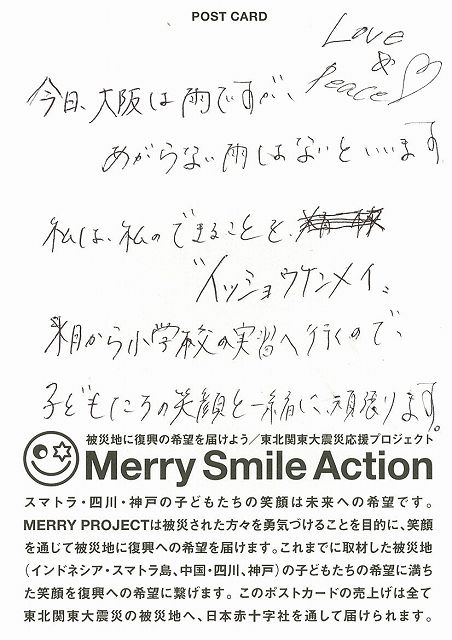 POST CARD
Love
&
Peace
今日、大阪は雨ですが、
あがらない雨はないといいます
私は、私のできることを、
"イッショウケンメイ"
来月から小学校の実習へ行くので、
子どもたちの笑顔と一緒に、頑張ります。
被災地に復興の希望を届けよう/東北関東大震災応援プロジェクト
Merry Smile Action
スマトラ・四川・神戸の子どもたちの笑顔は未来への希望です。
MERRY PROJECTは被災された方々を勇気づけることを目的に、笑顔
を通じて被災地に復興への希望を届けます。これまでに取材した被災地
(インドネシア・スマトラ島、中国・四川、神戸)の子どもたちの希望に満ち
た笑顔を復興への希望に繋げます。このポストカードの売上げは全て
東北関東大震災の被災地へ、日本赤十字社を通して届けられます。